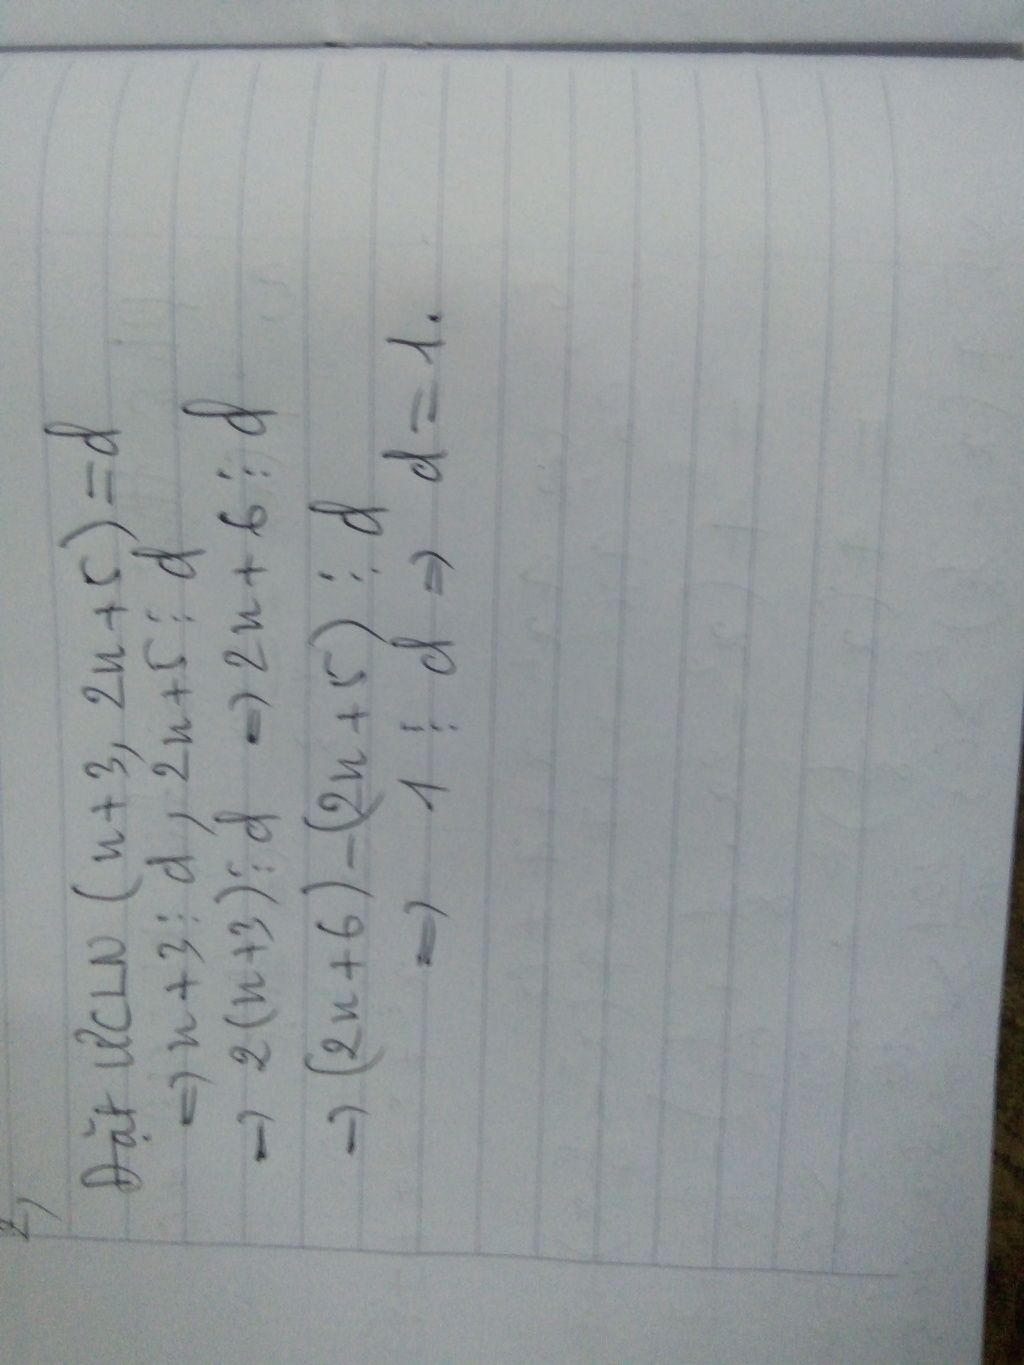 2,
Đặt ƯCLN (n+3, 2n+5) = d
=> n+3 ⋮ d, 2n+5 ⋮ d
=> 2(n+3) ⋮ d => 2n+6 ⋮ d
=> (2n+6) - (2n+5) ⋮ d
=> 1 ⋮ d => d = 1.